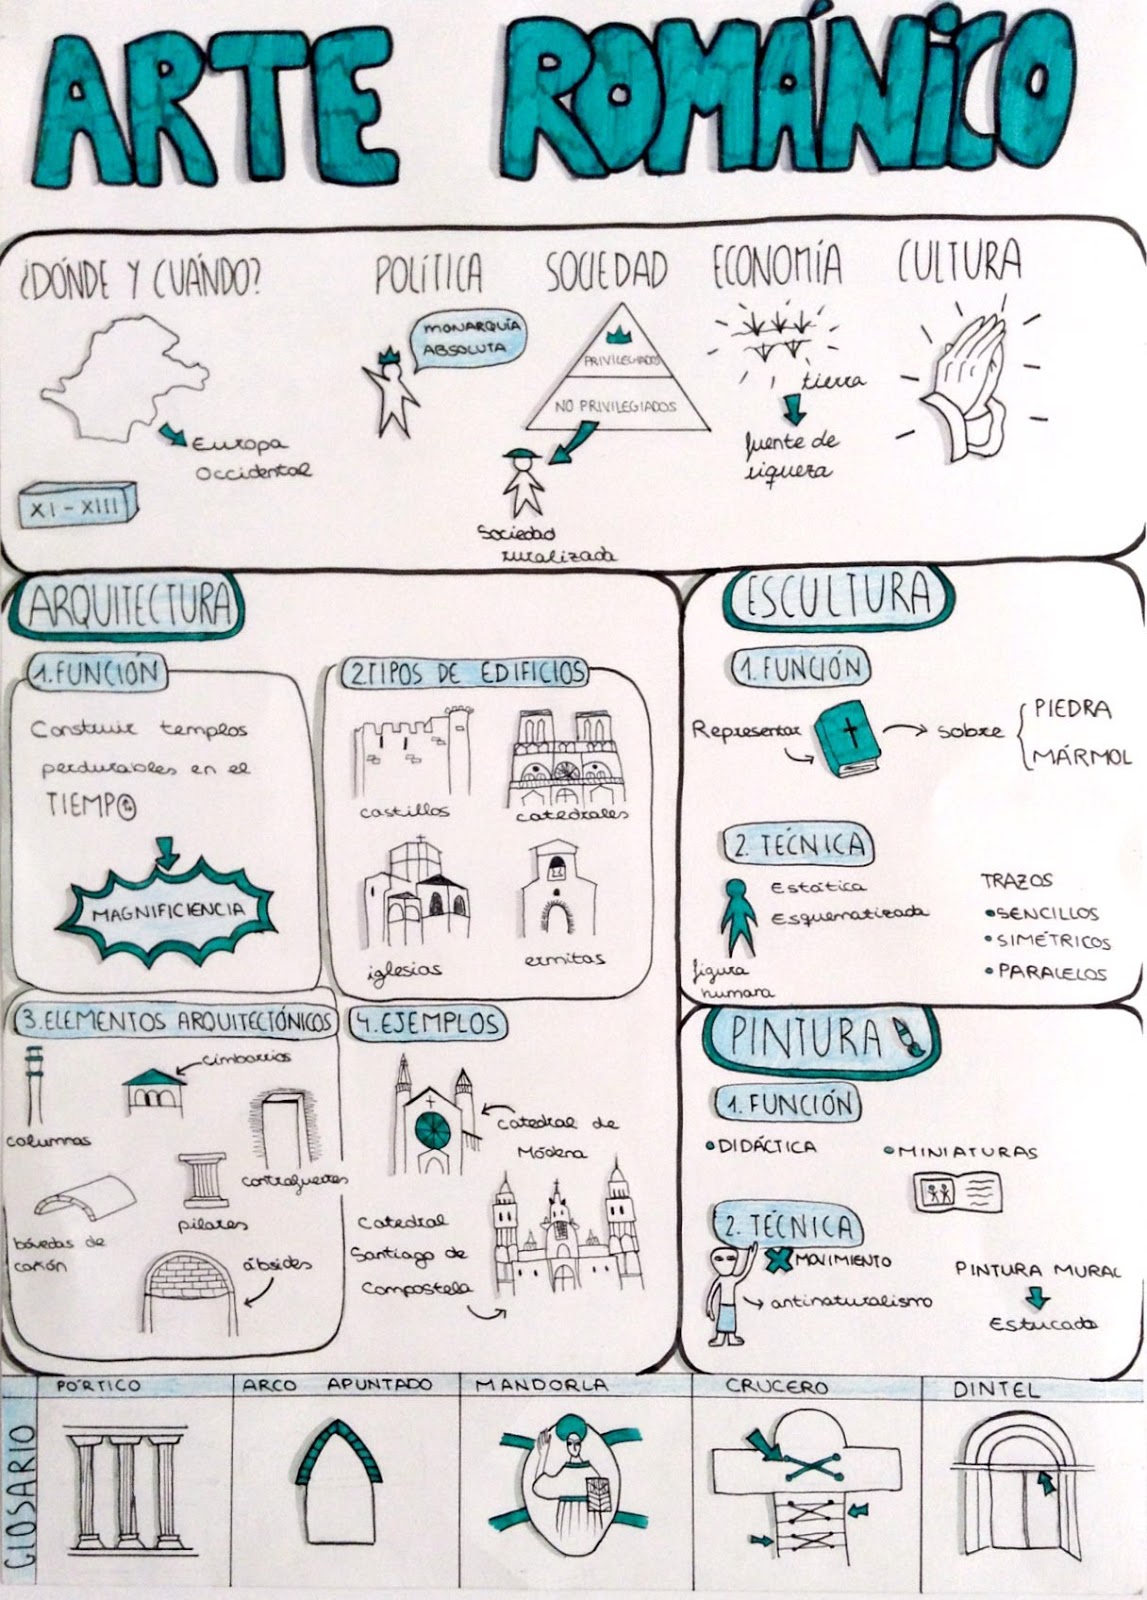 ARTE ROMÁNICO
¿DÓNDE Y CUÁNDO?
Europa
Occidental
XI - XIII
POLÍTICA
MONARQUÍA
ABSOLUTA
SOCIEDAD
PRIVILEGIADOS
NO PRIVILEGIADOS
Sociedad
ruralizada
ECONOMÍA
tierra
fuente de
riqueza
CULTURA
ARQUITECTURA
1. FUNCIÓN
Construir templos
perdurables en el
TIEMPO
MAGNIFICIENCIA
2. TIPOS DE EDIFICIOS
castillos
catedrales
iglesias
ermitas
3. ELEMENTOS ARQUITECTÓNICOS
columnas
cimborrios
contrafuertes
bóvedas de
cañón
pilares
ábsides
4. EJEMPLOS
Catedral de
Módena
Catedral
Santiago de
Compostela
ESCULTURA
1. FUNCIÓN
Representar
sobre
PIEDRA
MÁRMOL
2. TÉCNICA
Estática
Esquematizada
figura
humana
TRAZOS
• SENCILLOS
• SIMÉTRICOS
• PARALELOS
PINTURA
1. FUNCIÓN
• DIDÁCTICA
• MINIATURAS
2. TÉCNICA
MOVIMIENTO
antinaturalismo
PINTURA MURAL
Estucado
GLOSARIO
PÓRTICO
ARCO APUNTADO
MANDORLA
CRUCERO
DINTEL